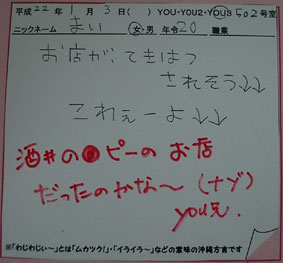 平成22年1月3日( ) YOU・YOU2・YOUS 502号室
ニックネーム まい 女・男 年令20 職業
お店が、てきはつ
されそう↓↓
これぇーよ↓↓
酒#の●ピーの お店
だったのかな〜(ナゾ)
you兄.
※「わじわじぃ〜」とは「ムカツク!」・「イライラ〜」などの意味の沖縄方言です